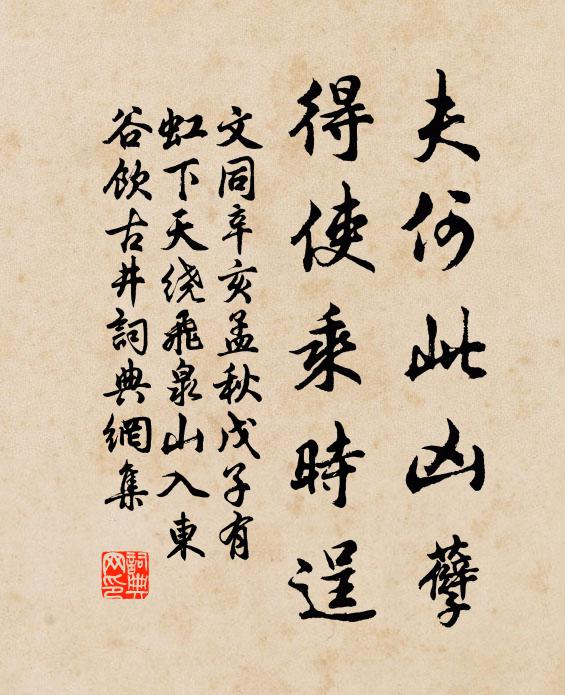 夫何此凶孽
得使乘時逞
文同辛亥孟秋戊子有
虹下天绕飛泉山入東
谷飲古井詞典網集
詞典网印